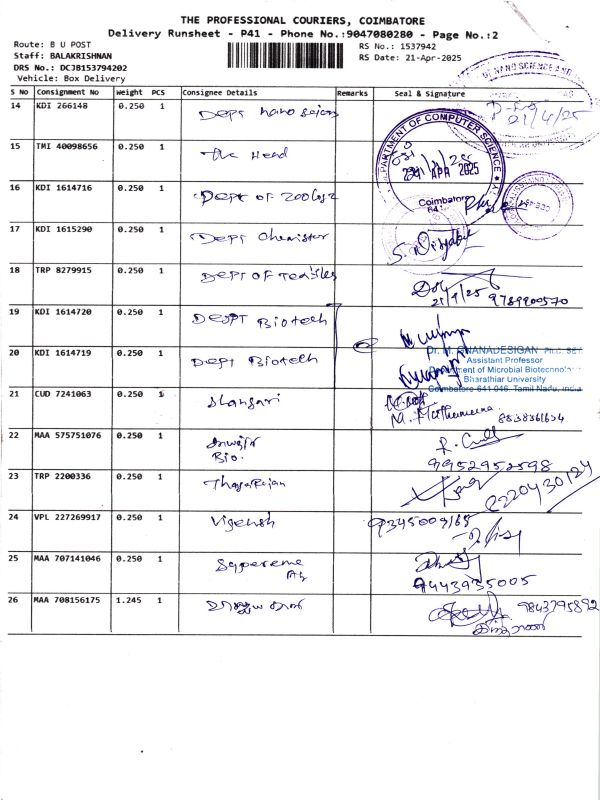 THE PROFESSIONAL COURIERS, COIMBATORE
Delivery Runsheet - P41 - Phone No.:9047080280 - Page No.:2
Route: B U POST
RS No.: 1537942
Staff: BALAKRISHNAN
RS Date: 21-Apr-2025
DRS No.: DCJB153794202
Vehicle: Box Delivery
S No Consignment No Weight PCS Consignee Details Remarks Seal & Signature
14 KDI 266148 0.250 1 Dept nano
21/4/25
15 TMI 40098656 0.250 1 The Head
DEPARTMENT OF COMPUTER SCIENCE
APR 2025
Coimbatore
641
16 KDI 1614716 0.250 1 Dept of Zoology
17 KDI 1615290 0.250 1 Dept Chemister
18 TRP 8279915 0.250 1 Dept of Textiles
21/4/25 9789900570
19 KDI 1614720 0.250 1 Dept Biotech
20 KDI 1614719 0.250 1 Dept Biotech
Dr. M. GNANADESIGAN
Assistant Professor
Department of Microbial Biotechnology
Bharathiar University
Coimbatore 641 046, Tamil Nadu, India
21 CUD 7241063 0.250 1 Shangari
22 MAA 575751076 0.250 1
Bio.
9952952598
23 TRP 2200336 0.250 1 Thayarajan
24 VPL 227269917 0.250 1 Vignesh
9345009165
25 MAA 707141046 0.250 1
9443935005
26 MAA 708156175 1.245 1
9843795892